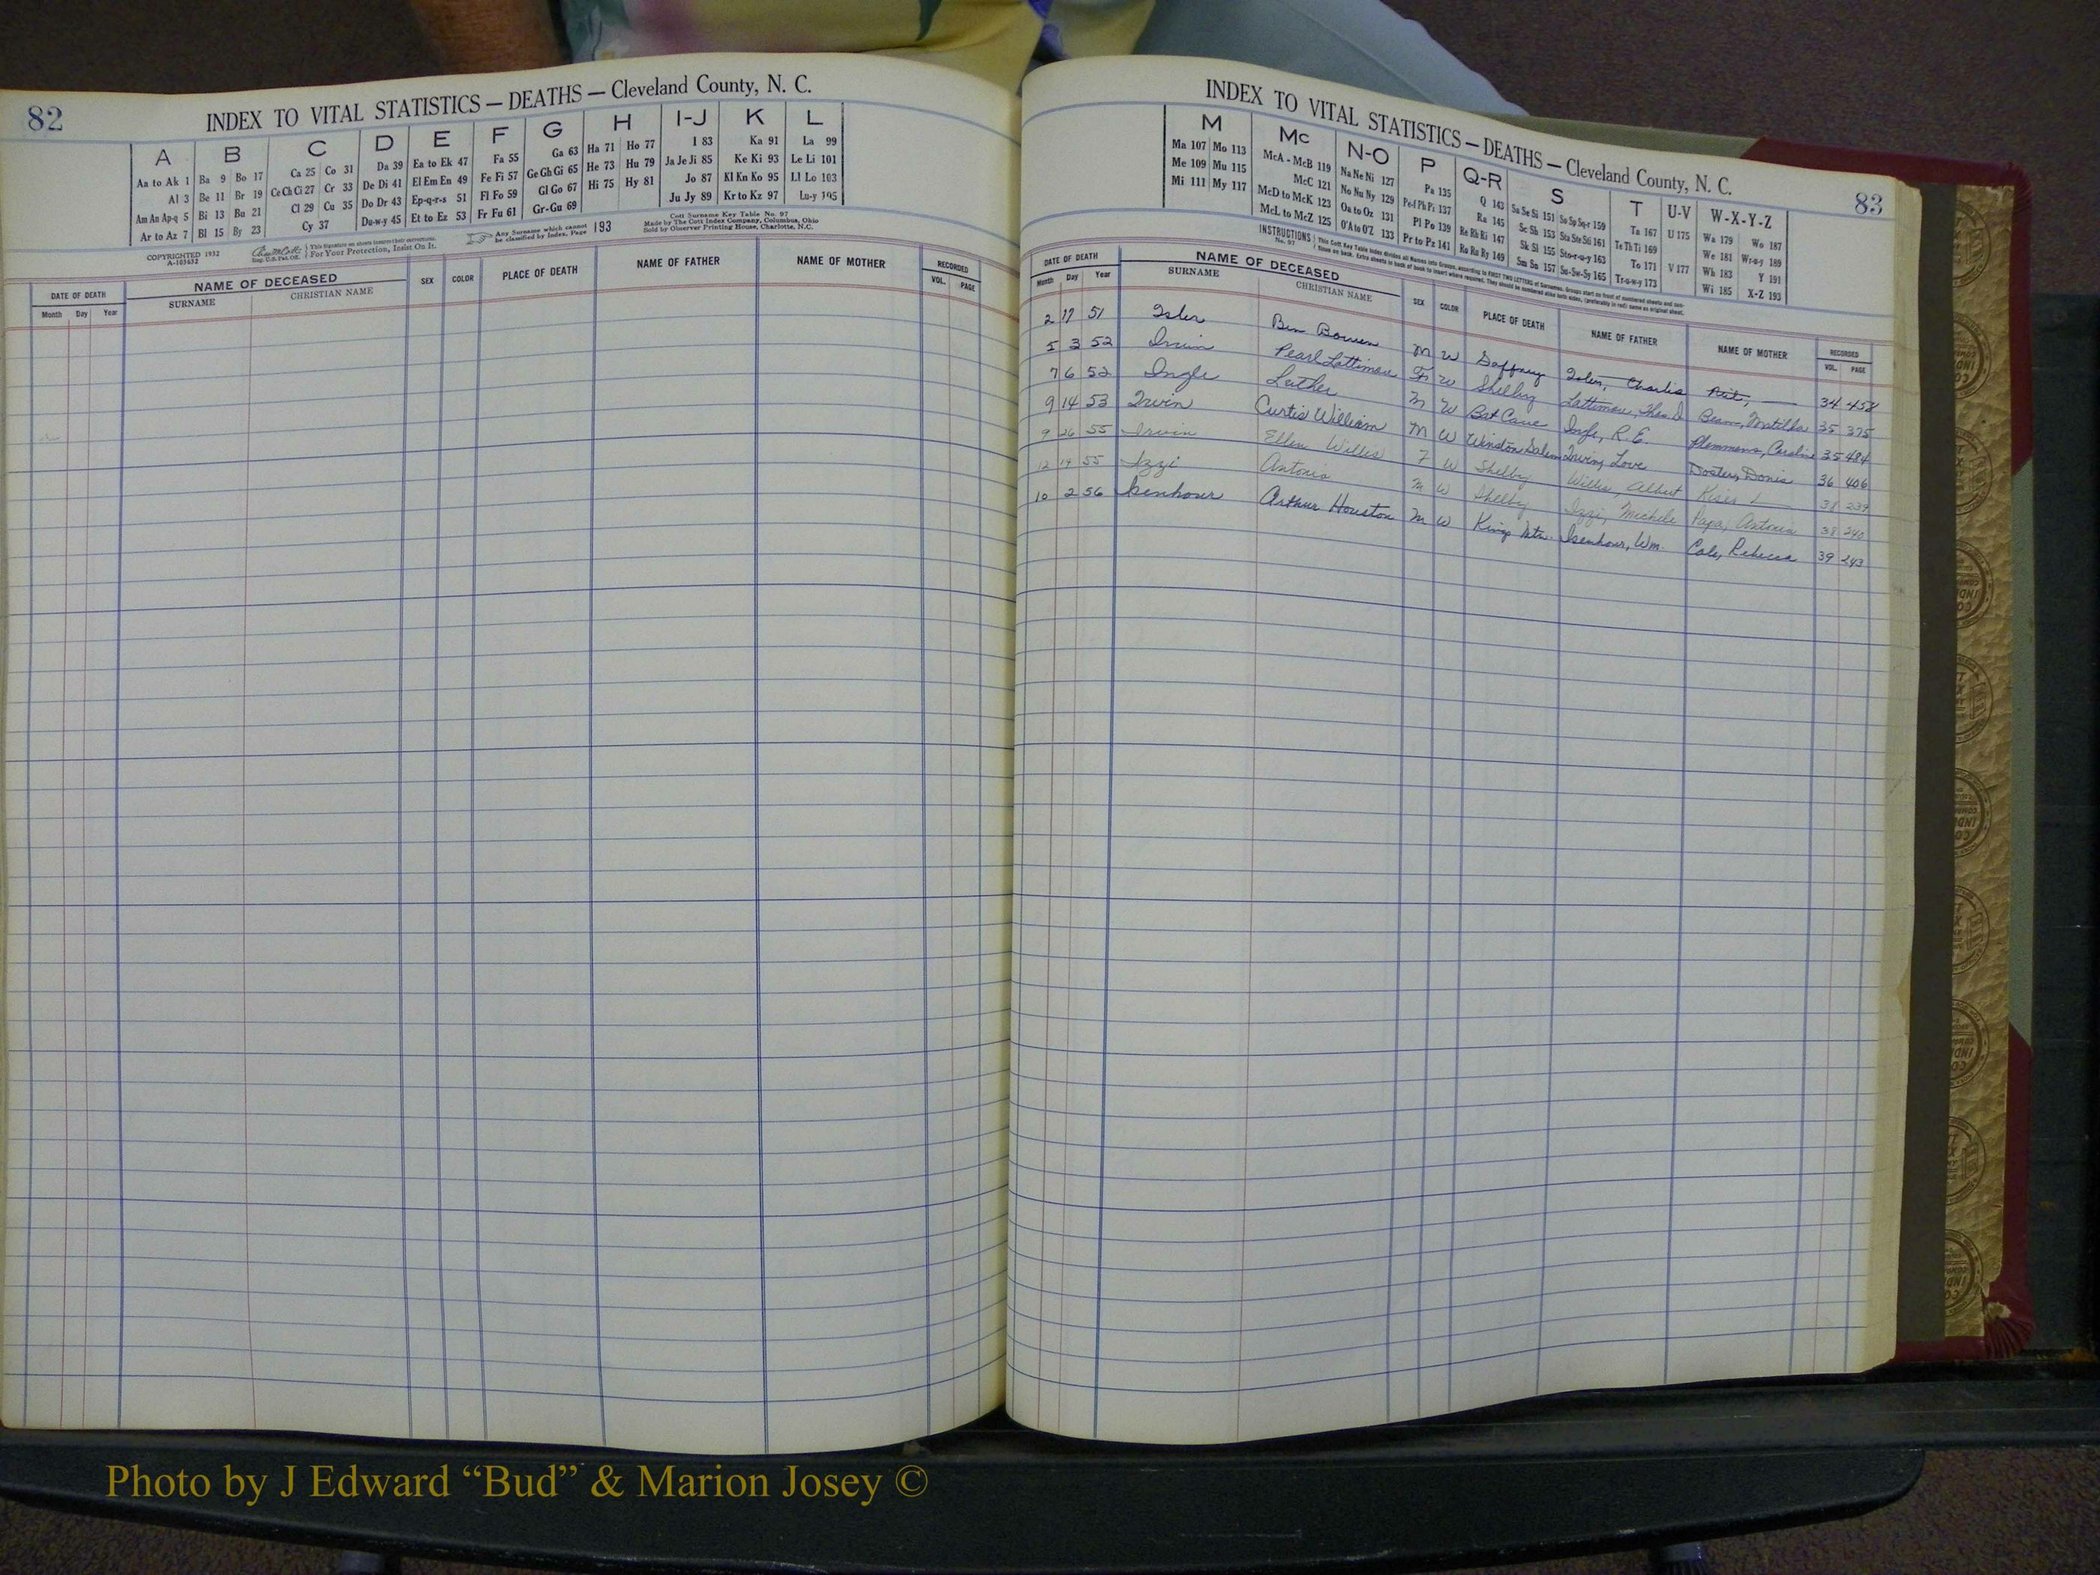 82
INDEX TO VITAL STATISTICS — DEATHS — Cleveland County, N. C.
A B C D E F G H I-J K L
Aa to Ak 1 Ba 9 Bo 17 Ca 25 Co 31 Da 39 Ea to Ek 47 Fa 55 Ga 63 Ha 71 Ho 77 I 83 Ka 91 La 99
Al 3 Be 11 Br 19 Ce Ch Ci 27 Cr 33 De Di 41 El Em En 49 Fe Fi 57 Ge Gh Gi 65 He 73 Hu 79 Ja Je Ji 85 Ke Ki 93 Le Li 101
Am An Ap-q 5 Bi 13 Bu 21 Cl 29 Cu 35 Do Dr 43 Ep-q-r-s 51 Fl Fo 59 Gl Go 67 Hi 75 Hy 81 Jo 87 Kl Kn Ko 95 Ll Lo 103
Ar to Az 7 Bl 15 By 23 Cy 37 Du-w-y 45 Et to Ez 53 Fr Fu 61 Gr-Gu 69 Ju Jy 89 Kr to Kz 97 Lu-y 105
COPYRIGHTED 1932
A-103632
This Signature on sheets insures their correctness.
For Your Protection, Insist On It.
Any Surname which cannot be classified by Index, Page 193
Cott Surname Key Table No. 97
Made by The Cott Index Company, Columbus, Ohio
Sold by Observer Printing House, Charlotte, N.C.
DATE OF DEATH NAME OF DECEASED SEX COLOR PLACE OF DEATH NAME OF FATHER NAME OF MOTHER RECORDED
Month Day Year SURNAME CHRISTIAN NAME VOL. PAGE
INDEX TO VITAL STATISTICS — DEATHS — Cleveland County, N. C.
83
M Mc N-O P Q-R S T U-V W-X-Y-Z
Ma 107 Mo 113 McA - McB 119 Na Ne Ni 127 Pa 135 Q 143 Sa Se Si 151 So Sp Sq-r 159 Ta 167 U 175 Wa 179 Wo 187
Me 109 Mu 115 McC 121 No Nu Ny 129 Pe-f Ph Pi 137 Ra 145 Sc Sh 153 Sta Ste Sti 161 Te Th Ti 169 We 181 Wr-u-y 189
Mi 111 My 117 McD to McK 123 Oa to Oz 131 Pl Po 139 Re Rh Ri 147 Sk Sl 155 Sto-r-u-y 163 To 171 V 177 Wh 183 Y 191
McL to McZ 125 O'A to O'Z 133 Pr to Pz 141 Ro Ru Ry 149 Sm Sn 157 Su-Sw-Sy 165 Tr-u-w-y 173 Wi 185 X-Z 193
INSTRUCTIONS No. 97
DATE OF DEATH NAME OF DECEASED SEX COLOR PLACE OF DEATH NAME OF FATHER NAME OF MOTHER RECORDED
Month Day Year SURNAME CHRISTIAN NAME VOL. PAGE
2 17 51 Isler Ben Bowen M W Gaffney Isler, Charlie 34 458
5 3 52 Irvin Pearl Lattimore F W Shelby Lattimore, Thos D Beam, Matilda 35 375
7 6 52 Ingle Luther M W Bat Cave Ingle, R. E. Plemmons, Caroline 35 484
9 14 53 Irvin Curtis William M W Winston Salem Irvin, Love Doster, Donis 36 406
9 26 55 Irvin Ellen Willis F W Shelby Willis, Albert Kiser 38 239
12 19 55 Izzi Antonio M W Shelby Izzi, Michele Papa, Antonia 38 240
10 2 56 Isenhour Arthur Houston M W Kings Mtn. Isenhour, Wm. Cole, Rebecca 39 243
Photo by J Edward “Bud” & Marion Josey ©